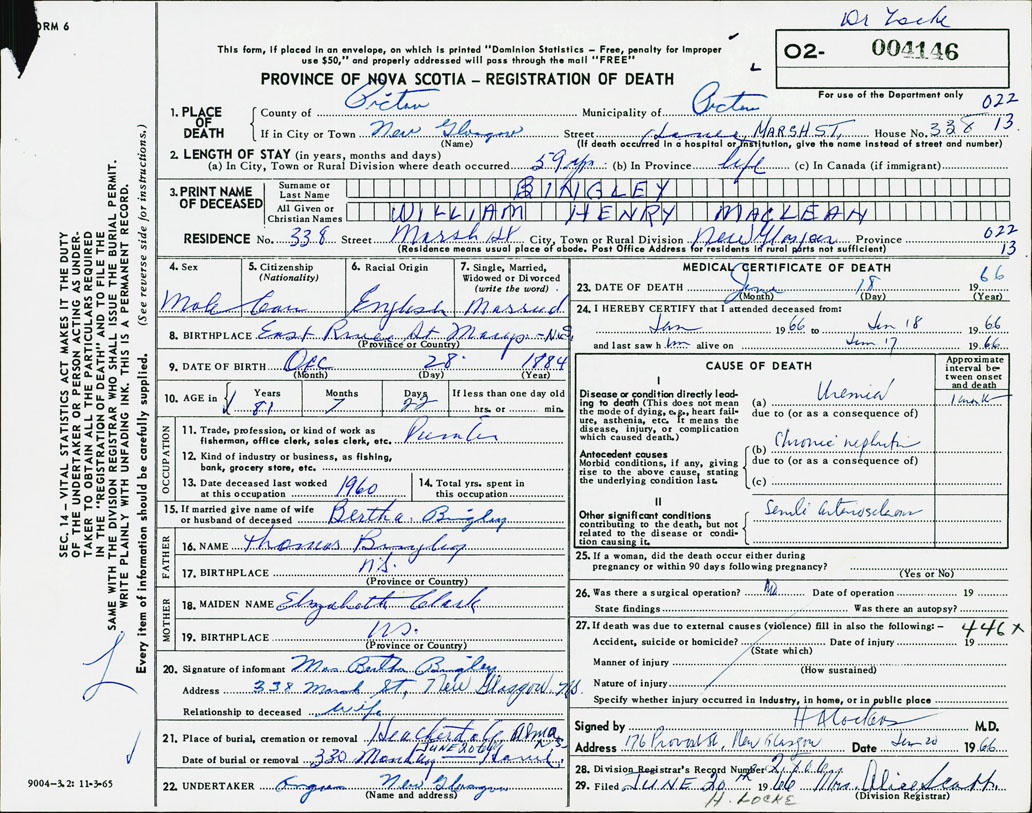 ORM 6
Dr Locke
This form, if placed in an envelope, on which is printed "Dominion Statistics – Free, penalty for improper
use $50," and properly addressed will pass through the mail "FREE"
O2- 004146
PROVINCE OF NOVA SCOTIA – REGISTRATION OF DEATH
For use of the Department only
022
13
1. PLACE OF DEATH
County of Pictou Municipality of Pictou
If in City or Town New Glasgow Street MARSH ST. House No. 338
(Name) (If death occurred in a hospital or institution, give the name instead of street and number)
2. LENGTH OF STAY (in years, months and days)
(a) In City, Town or Rural Division where death occurred 59 yrs (b) In Province life (c) In Canada (if immigrant)
3. PRINT NAME OF DECEASED
Surname or Last Name BINGLEY
All Given or Christian Names WILLIAM HENRY MACLEAN
RESIDENCE No. 338 Street Marsh St City, Town or Rural Division New Glasgow Province
022
13
(Residence means usual place of abode. Post Office Address for residents in rural parts not sufficient)
4. Sex
Male
5. Citizenship
(Nationality)
Can
6. Racial Origin
English
7. Single, Married,
Widowed or Divorced
(write the word)
Married
8. BIRTHPLACE East River St Marys - N.S.
(Province or Country)
9. DATE OF BIRTH Dec 28 1884
(Month) (Day) (Year)
10. AGE in Years Months Days If less than one day old
81 7 22 hrs. or min.
OCCUPATION
11. Trade, profession, or kind of work as
fisherman, office clerk, sales clerk, etc.
12. Kind of industry or business, as fishing,
bank, grocery store, etc.
13. Date deceased last worked
at this occupation 1960
14. Total yrs. spent in
this occupation
15. If married give name of wife
or husband of deceased Bertha Bingley
FATHER
16. NAME Thomas Bingley
17. BIRTHPLACE N.S.
(Province or Country)
MOTHER
18. MAIDEN NAME Elizabeth Clark
19. BIRTHPLACE N.S.
(Province or Country)
20. Signature of informant Mrs Bertha Bingley
Address 338 Marsh St, New Glasgow N.S.
Relationship to deceased wife
21. Place of burial, cremation or removal Alma N.S.
Date of burial or removal 330 Monday JUNE 20
22. UNDERTAKER New Glasgow
(Name and address)
MEDICAL CERTIFICATE OF DEATH
23. DATE OF DEATH June 18 1966
(Month) (Day) (Year)
24. I HEREBY CERTIFY that I attended deceased from:
Jan 1966 to Jun 18 1966
and last saw him alive on Jun 17 1966
CAUSE OF DEATH
Approximate
interval be-
tween onset
and death
I
Disease or condition directly lead-
ing to death (This does not mean
the mode of dying, e.g., heart fail-
ure, asthenia, etc. It means the
disease, injury, or complication
which caused death.)
(a) Uremia
due to (or as a consequence of)
Antecedent causes
Morbid conditions, if any, giving
rise to the above cause, stating
the underlying condition last.
(b) Chronic nephritis
due to (or as a consequence of)
(c)
II
Other significant conditions
contributing to the death, but not
related to the disease or condi-
tion causing it.
Senile arteriosclerosis
25. If a woman, did the death occur either during
pregnancy or within 90 days following pregnancy?
(Yes or No)
26. Was there a surgical operation? No Date of operation 19
State findings Was there an autopsy?
27. If death was due to external causes (violence) fill in also the following: – 446 x
Accident, suicide or homicide? Date of injury 19
(State which)
Manner of injury
(How sustained)
Nature of injury
Specify whether injury occurred in industry, in home, or in public place
Signed by M.D.
Address 176 Provost St, New Glasgow Date Jun 20 1966
28. Division Registrar's Record Number
29. Filed JUNE 20 1966 Mrs. Alice Scott
(Division Registrar)
H. LOCKE
SEC. 14 – VITAL STATISTICS ACT MAKES IT THE DUTY
OF THE UNDERTAKER OR PERSON ACTING AS UNDER-
TAKER TO OBTAIN ALL THE PARTICULARS REQUIRED
IN THE "REGISTRATION OF DEATH" AND TO FILE THE
SAME WITH THE DIVISION REGISTRAR WHO SHALL ISSUE THE BURIAL PERMIT.
WRITE PLAINLY WITH UNFADING INK. THIS IS A PERMANENT RECORD.
Every item of information should be carefully supplied. (See reverse side for instructions.)
9004-3.2: 11-3-65